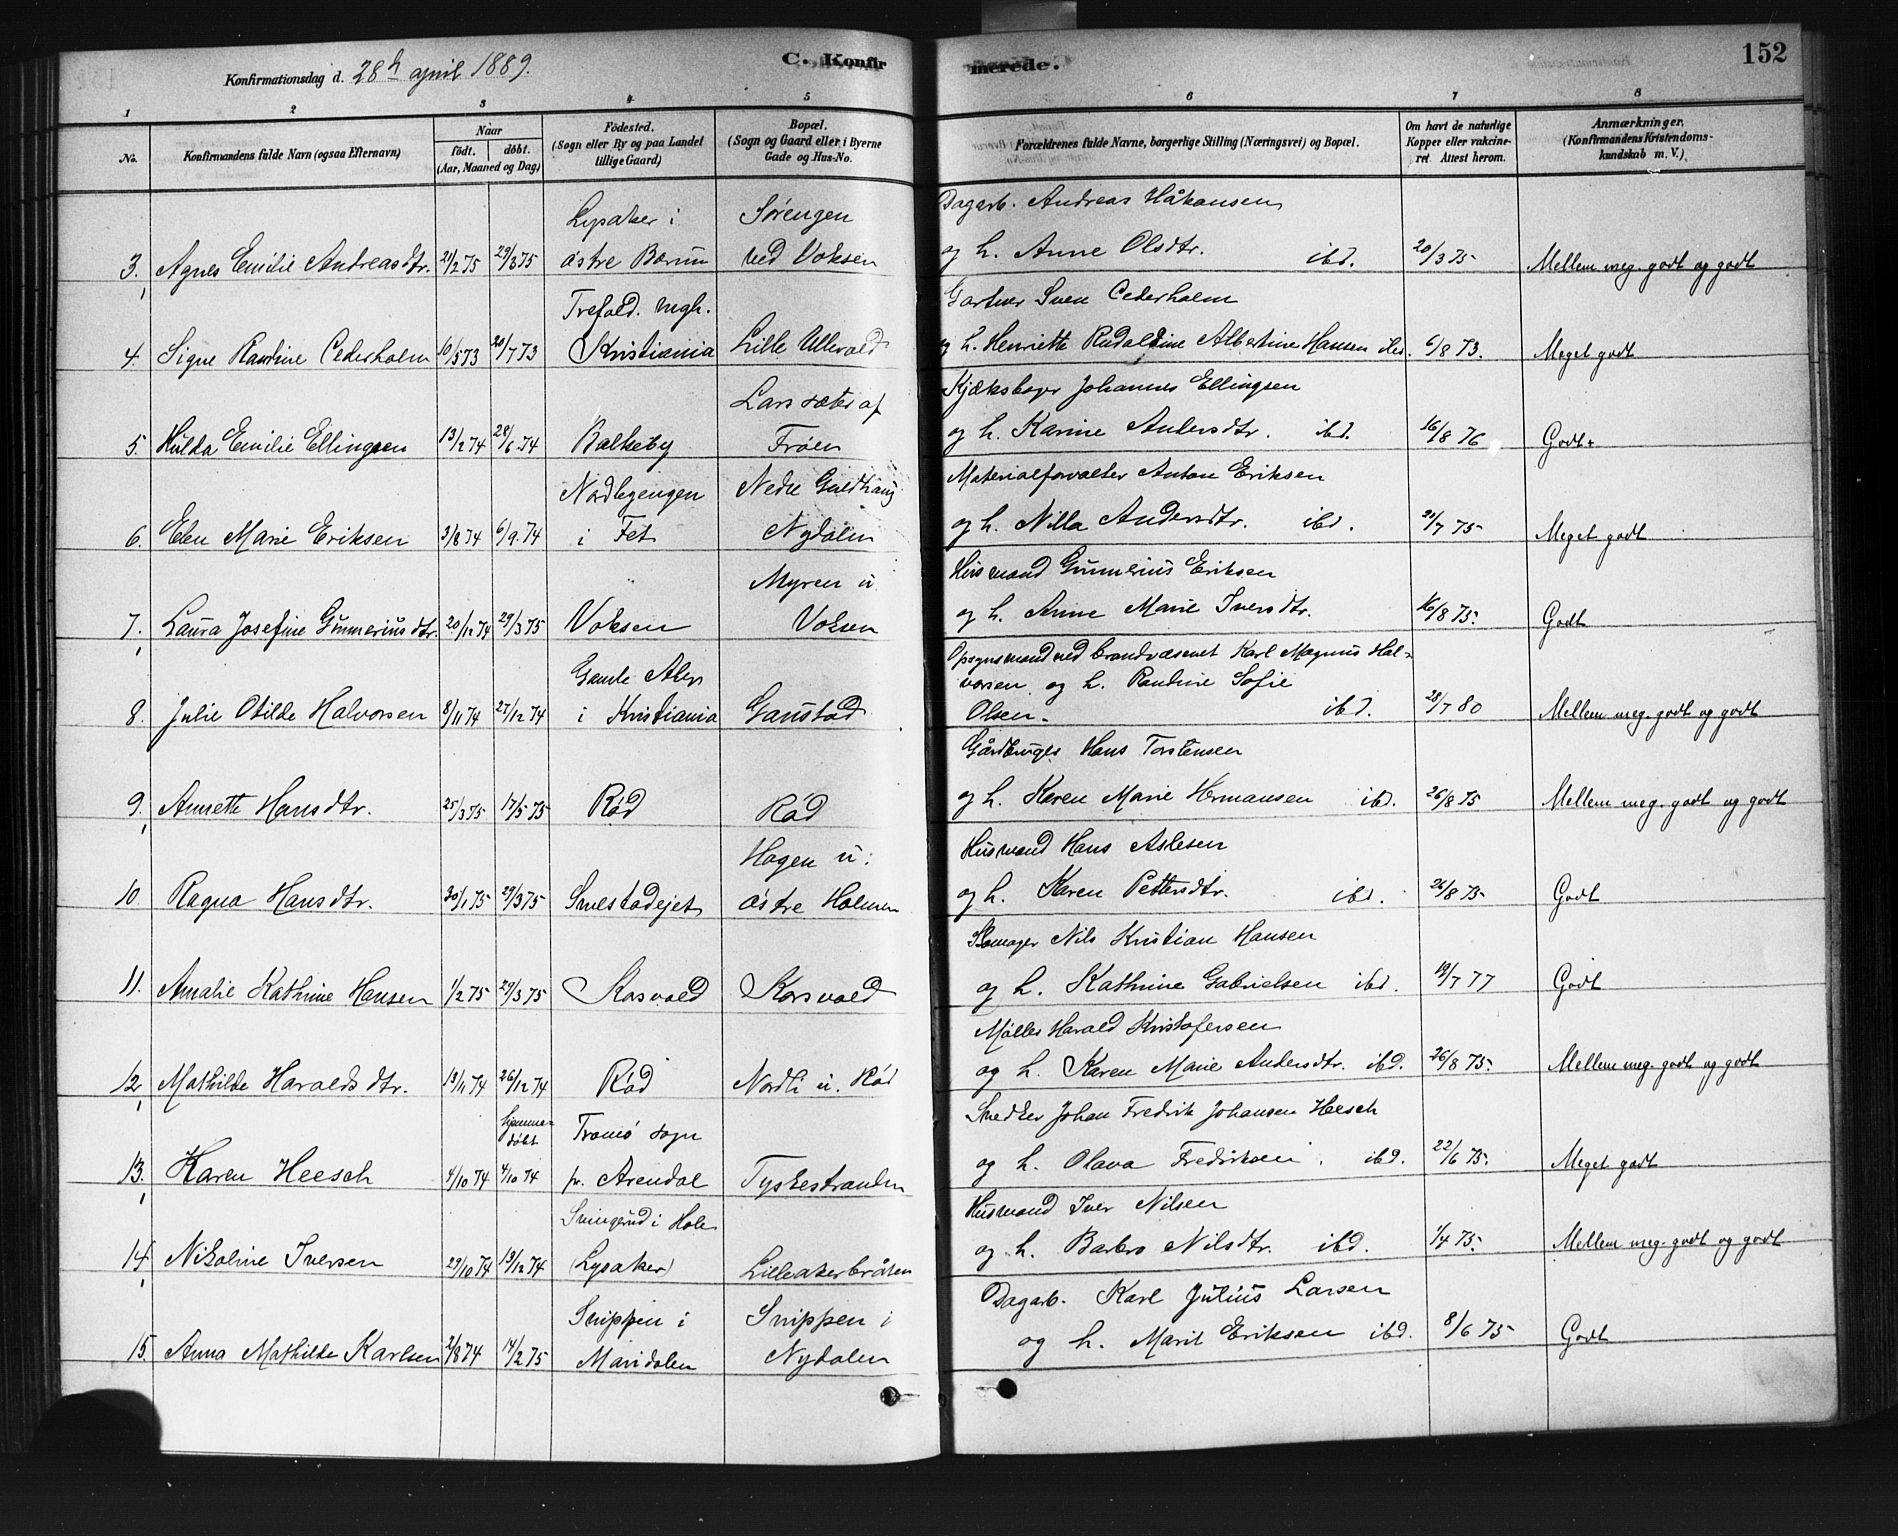 Konfirmationsdag d. 28de april 1889.
C. Konfirmerede.
152
1 2 3 4 5 6 7 8
No.
Konfirmandens fulde Navn (ogsaa Efternavn)
Naar
födt. döbt.
(Aar, Maaned og Dag)
Födested.
(Sogn eller By og paa Landet
tillige Gaard)
Bopæl.
(Sogn og Gaard eller i Byerne
Gade og Hus-No.
Forældrenes fulde Navne, borgerlige Stilling (Næringsvei) og Bopæl.
Om havt de naturlige
Kopper eller vakcine-
ret Attest herom.
Anmærkninger.
(Konfirmandens Kristendoms-
kundskab m. V.)
Lysaker i Sörengen Dagarb. Andreas Håkansen
3. Agnes Emilie Andreasdtr. 21/2 75 29/3 75 östre Bærum ved Voksen og h. Anne Olsdtr. ibd. 20/3 75 Mellem meg. godt og godt
Trefold. mgh. Gartner Sven Cederholm
4. Signe Randine Cederholm 10/5 73 20/7 73 Kristiania Lille Ullevold og h. Henriette Rudoldine Albertine Hansen ibd. 6/8 73. Meget godt
Lars sæter af Kjæksbager Johannes Ellingsen
5. Hulda Emilie Ellingsen 13/2 74 28/6 74 Balkeby Fröen og h. Karine Andersdtr. ibd. 16/8 76 Godt+
Nordbyengen Nedre Guldhaug Materialforvalter Anton Eriksen
6. Elen Marie Eriksen 3/8 74 6/9 74 i Fet Nydalen og h. Nilla Andersdtr. ibd. 21/7 75 Meget godt
Myren u. Husmand Gunnerius Eriksen
7. Laura Josefine Gunneriusdtr. 20/12 74 29/3 75 Voksen Voksen og h. Anne Marie Iversdtr. 16/8 75. Godt
Gamle Aker Opsynsmand ved brandvæsenet Karl Magnus Hal-
vorsen og h. Randine Sofie
8. Julie Otilde Halvorsen 8/11 74 27/12 74 i Kristiania Gaustad Olsen. ibd. 28/7 80 Mellem meg. godt og godt
Gårdbruger Hans Torstensen
9. Annette Hansdtr. 25/3 75 17/5 75 Röd Röd og h. Karen Marie Hermansen ibd. 26/8 75 Mellem meg. godt og godt
Hagen u. Husmand Hans Aslesen
10. Ragna Hansdtr. 30/1 75 29/3 75 Smestadejet östre Holmen og h. Karen Pettersdtr. ibd. 26/8 75 Godt
Skomager Nils Kristian Hansen
11. Amalie Kathrine Hansen 1/2 75 29/3 75 Korsvold Korsvold og h. Kathrine Gabrielsen ibd. 19/7 77 Godt
Möller Harald Kristofersen
12. Mathilde Haraldsdtr. 19/11 74 26/12 74 Röd Nordli u. Röd og h. Karen Marie Andersdtr. ibd. 26/8 75. Mellem meg. godt og godt
hjemme-
döbt Tromö sogn Snedker Johan Fredrik Johansen Heesch
13. Karen Heesch 4/10 74 4/10 74 pr. Arendal Tyskestranden og h. Olava Fredriksen. ibd. 22/6 75. Meget godt
i Hole Husmand Iver Nilsen
14. Nikoline Iversen 29/10 74 19/12 74 (Lysaker) Lilleakerbråten og h. Barbro Nilsdtr. ibd. 1/4 75. Mellem meg. godt og godt
Snippen i Snippen i Dagarb. Karl Julius Larsen
15. Anna Mathilde Karlsen 2/8 74 14/2 75 Maridalen Nydalen og h. Marit Eriksen ibd. 8/6 75 Godt